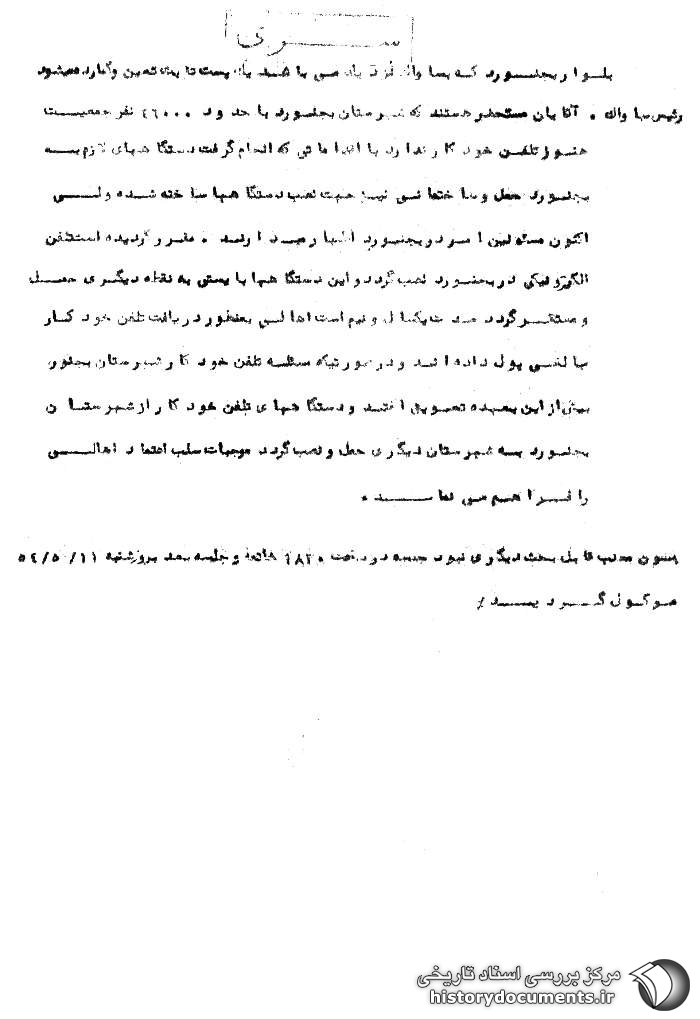 ســـری
بلوار بجنورد که بساواک نزدیک می باشد یک پست ثابت تعیین و گمارده میشود
رئیس ساواک . آقایان مستحضر هستند که شهرستان بجنورد با حدود ۴۶۰۰۰ نفر جمعیت
هنوز تلفن خود کار ندارد با اقداماتی که انجام گرفت دستگاههای لازم به
بجنورد حمل و ساختمانی نیز جهت نصب دستگاهها ساخته شده ولی
اکنون مسئولین امر در بجنورد اظهار میدارند . مقرر گردیده است تلفن
الکترونیکی در بجنورد نصب گردد و این دستگاهها بایستی به نقطه دیگری حمل
و مستقر گردد مدت یکسال و نیم است اهالی بمنظور دریافت تلفن خود کار
مبالغی پول داده اند و در صورتیکه مسئله تلفن خود کار شهرستان بجنورد
بیش از این بعهده تعویق افتد و دستگاههای تلفن خود کار از شهرستان
بجنورد به شهرستان دیگری حمل و نصب گردد موجبات سلب اعتماد اهالی
را فراهم می نماید .
چون مطلب قابل بحث دیگری نبود جلسه در ساعت ۱۸۳۰ خاتمه و جلسه بعد بروز شنبه ۵۲/۵/۱۱
موکول گردید /
مرکز بررسی اسناد تاریخی
historydocuments.ir